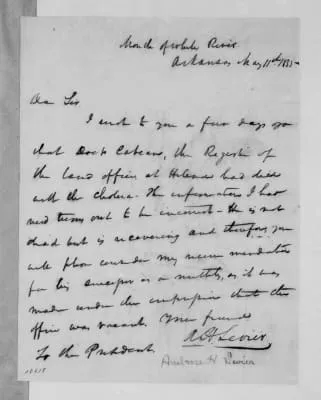 Mouth of White River
Arkansas May 11th 1835
Dear Sir
I wrote to you a few days ago
that Doct Cabeans, the Register of
the land office at Helena had died
with the cholera. The information I had
recd turns out to be incorrect - He is not
dead but is recovering and therefore you
will please consider my recommendation
for his successor as a nullity, as it was
made under the impression that the
office was vacant. Your friend
A H Sevier
To the President
Ambrose H. Sevier